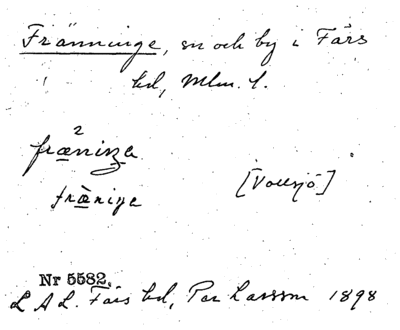 Fränninge, sn och by i Färs
hd, Mlm. l.
2
fræninga
fràniga
[Vollsjö]
Nr 5582.
L A L. Färs hd, Per Larsson 1898